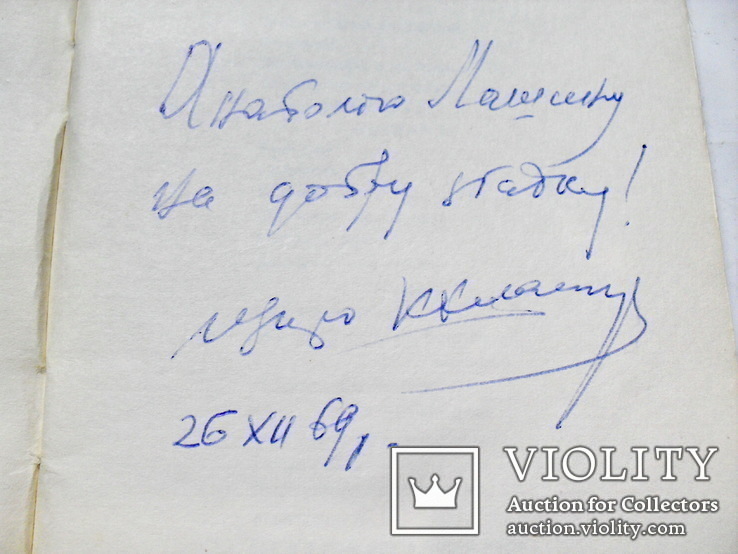 Анатолію Лашину
на добру згадку!
щиро
26 XII 69 р.
VIOLITY
Auction for Collectors
auction.violity.com